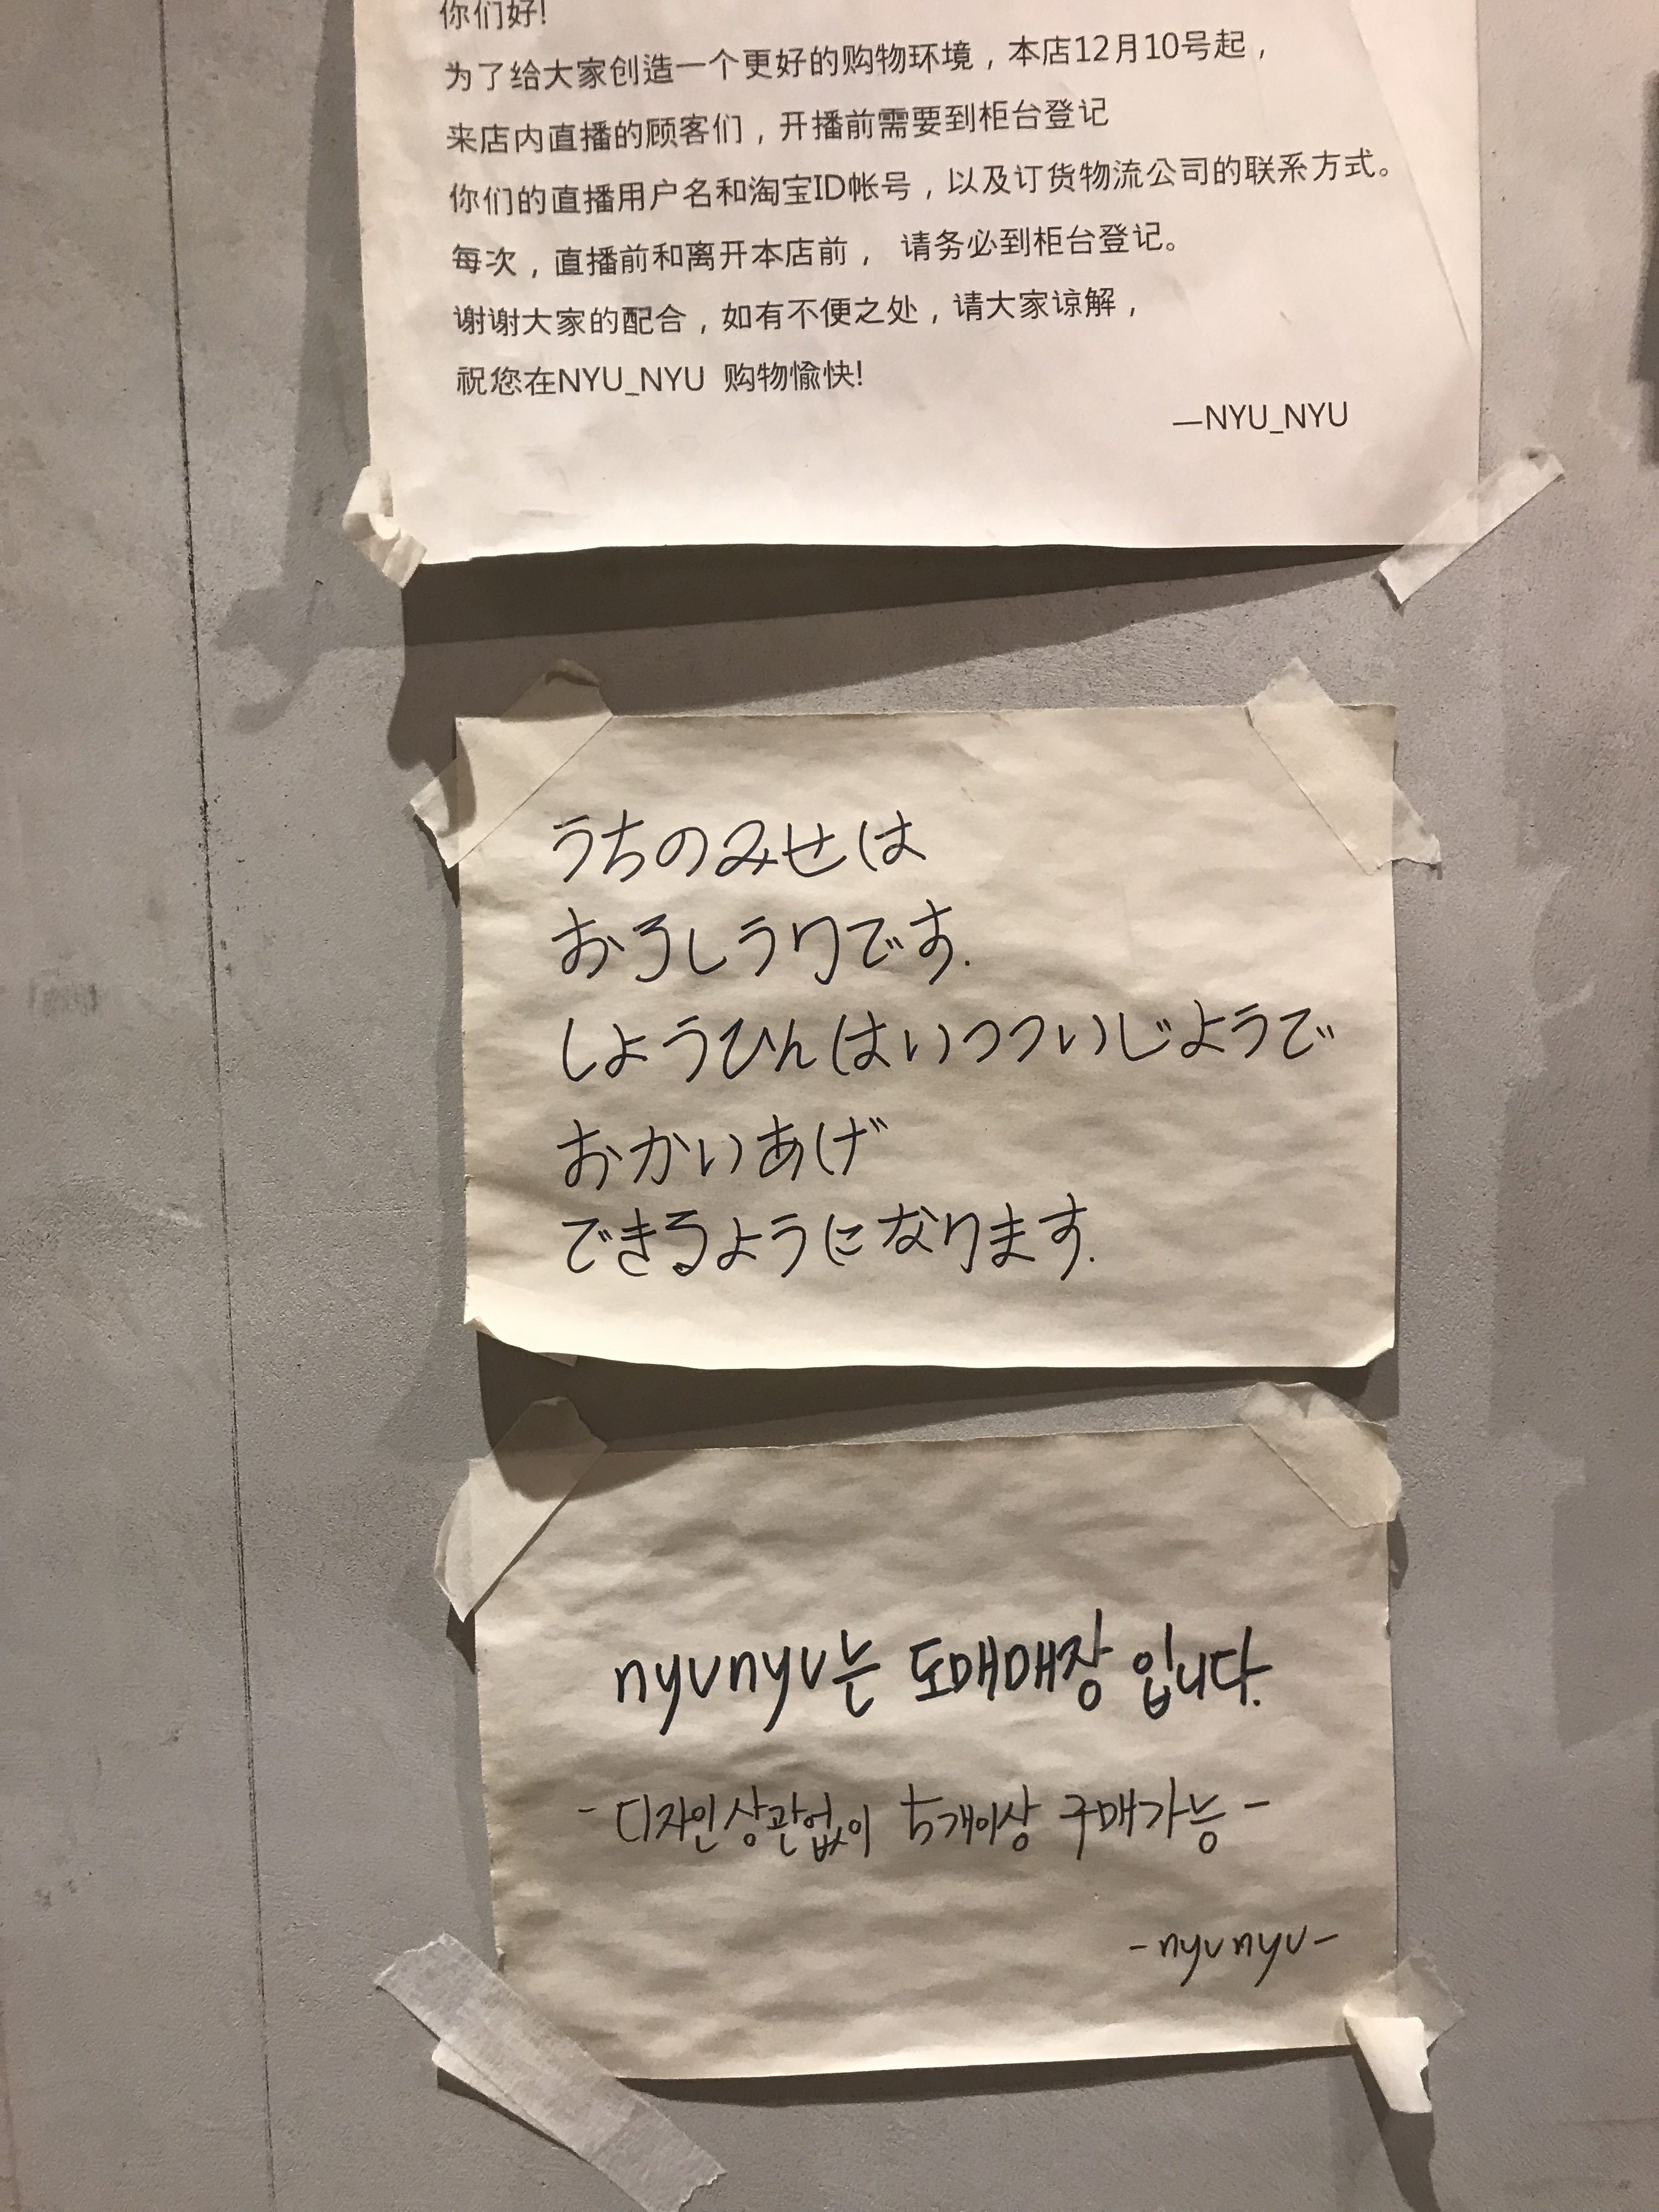 你们好!
为了给大家创造一个更好的购物环境，本店12月10号起，
来店内直播的顾客们，开播前需要到柜台登记
你们的直播用户名和淘宝ID帐号，以及订货物流公司的联系方式。
每次，直播前和离开本店前， 请务必到柜台登记。
谢谢大家的配合，如有不便之处，请大家谅解，
祝您在NYU_NYU 购物愉快!
—NYU_NYU
うちのみせは
おろしうりです.
しようひんはいつついじようで
おかいあげ
できるようになります.
nyunyu는 도매매장 입니다.
- 디자인상관없이 5개이상 구매가능 -
-nyunyu-